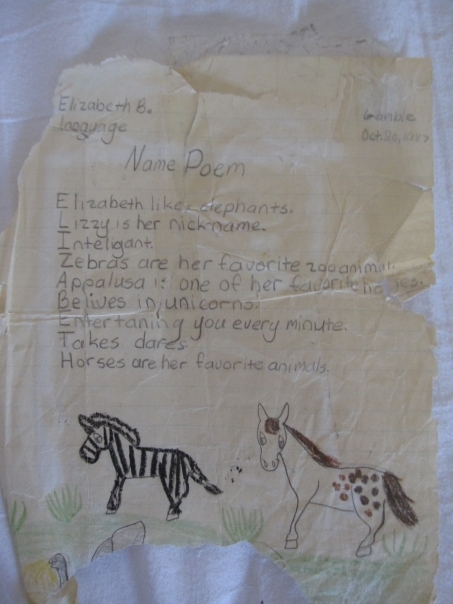 Elizabeth B.
Gamble
language
Oct 20, 1987
Name Poem
Elizabeth likes elephants.
Lizzy is her nickname.
Inteligant.
Zebras are her favorite zoo animal.
Appalusa is one of her favorite horses.
Belives in unicorns.
Entertaning you every minute.
Takes dares.
Horses are her favorite animals.